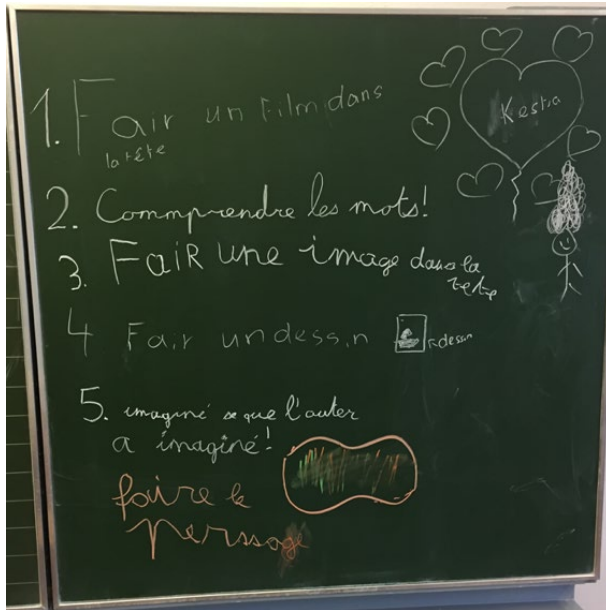 1. Fair un film dans
la tête
Kestia
2. Commprendre les mots!
3. Fair une image dans la
tete
4 Fair un dessin dessin
5. imaginé se que l'auter
a imaginé!
faire le
perssage